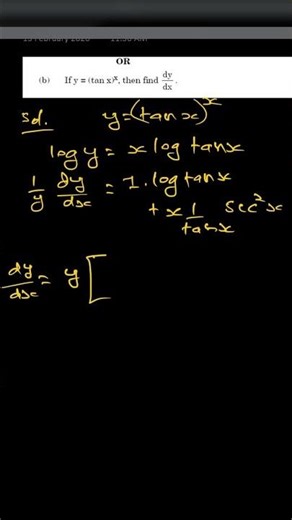 OR
(b) If y = (tan x)ˣ, then find dy/dx.
Sol. y=(tanx)ˣ
log y = x log tanx
1/y dy/dx = 1. log tanx
+ x 1/tanx sec²x
dy/dx = y [